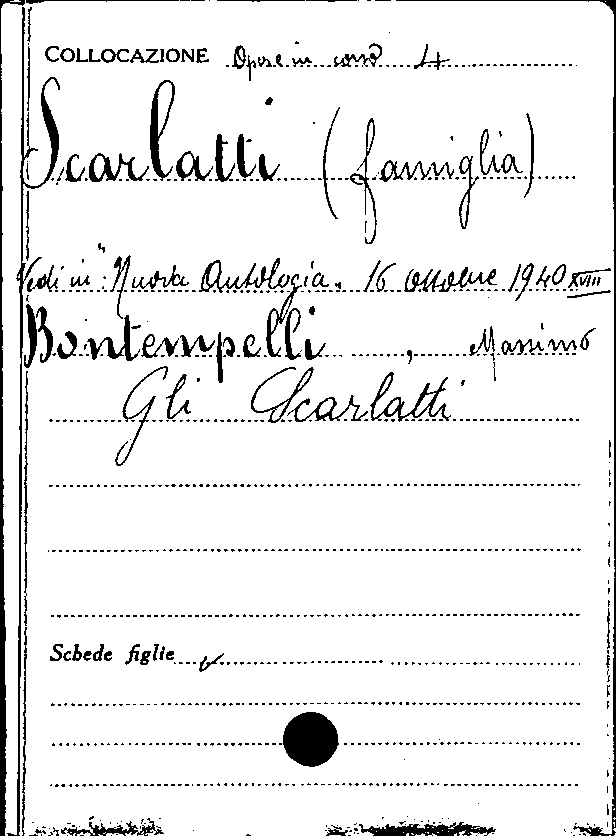 COLLOCAZIONE Opere in corso 4
Scarlatti (famiglia)
Vedi in "Nuova Antologia. 16 ottobre 1940 XVIII
Bontempelli , Massimo
Gli Scarlatti
Schede figlie